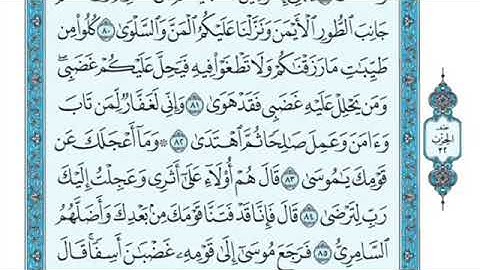 جَانِبَ ٱلطُّورِ ٱلْأَيْمَنَ وَنَزَّلْنَا عَلَيْكُمُ ٱلْمَنَّ وَٱلسَّلْوَىٰ ٨٠ كُلُوا۟ مِن
طَيِّبَٰتِ مَا رَزَقْنَٰكُمْ وَلَا تَطْغَوْا۟ فِيهِ فَيَحِلَّ عَلَيْكُمْ غَضَبِى ۖ
وَمَن يَحْلِلْ عَلَيْهِ غَضَبِى فَقَدْ هَوَىٰ ٨١ وَإِنِّى لَغَفَّارٌ لِّمَن تَابَ
وَءَامَنَ وَعَمِلَ صَٰلِحًا ثُمَّ ٱهْتَدَىٰ ٨٢ ۞ وَمَآ أَعْجَلَكَ عَن
قَوْمِكَ يَٰمُوسَىٰ ٨٣ قَالَ هُمْ أُو۟لَآءِ عَلَىٰٓ أَثَرِى وَعَجِلْتُ إِلَيْكَ
رَبِّ لِتَرْضَىٰ ٨٤ قَالَ فَإِنَّا قَدْ فَتَنَّا قَوْمَكَ مِنۢ بَعْدِكَ وَأَضَلَّهُمُ
ٱلسَّامِرِىُّ ٨٥ فَرَجَعَ مُوسَىٰٓ إِلَىٰ قَوْمِهِۦ غَضْبَٰنَ أَسِفًا ۚ قَالَ
الحزب
٣٢